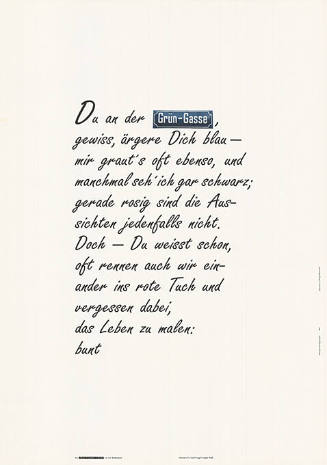 Du an der Grün-Gasse,
gewiss, ärgere Dich blau –
mir graut's oft ebenso, und
manchmal seh' ich gar schwarz;
gerade rosig sind die Aus-
sichten jedenfalls nicht.
Doch – Du weisst schon,
oft rennen auch wir ein-
ander ins rote Tuch und
vergessen dabei,
das Leben zu malen:
bunt